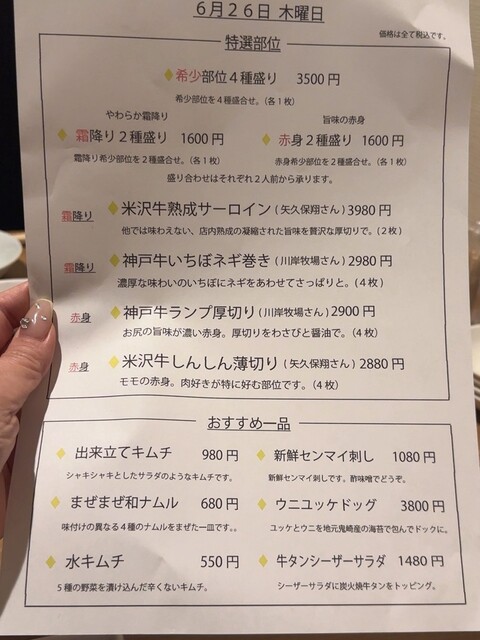 6月26日 木曜日
価格は全て税込です。
特選部位
希少部位4種盛り 3500円
希少部位を4種盛合せ。(各1枚)
やわらか霜降り 旨味の赤身
霜降り2種盛り 1600円 赤身2種盛り 1600円
霜降り希少部位を2種盛合せ。(各1枚) 赤身希少部位を2種盛合せ。(各1枚)
盛り合わせはそれぞれ2人前から承ります。
霜降り 米沢牛熟成サーロイン(矢久保翔さん)3980円
他では味わえない、店内熟成の凝縮された旨味を贅沢な厚切りで。(2枚)
霜降り 神戸牛いちぼネギ巻き(川岸牧場さん)2980円
濃厚な味わいのいちぼにネギをあわせてさっぱりと。(4枚)
赤身 神戸牛ランプ厚切り(川岸牧場さん)2900円
お尻の旨味が濃い赤身。厚切りをわさびと醤油で。(4枚)
赤身 米沢牛しんしん薄切り(矢久保翔さん)2880円
モモの赤身。肉好きが特に好む部位です。(4枚)
おすすめ一品
出来立てキムチ 980円 新鮮センマイ刺し 1080円
シャキシャキとしたサラダのようなキムチです。 新鮮センマイ刺しです。酢味噌でどうぞ。
まぜまぜ和ナムル 680円 ウニユッケドッグ 3800円
味付けの異なる4種のナムルをまぜた一皿です。。 ユッケとウニを地元鬼崎産の海苔で包んでドックに。
水キムチ 550円 牛タンシーザーサラダ 1480円
5種の野菜を漬け込んだ辛くないキムチ。 シーザーサラダに炭火焼牛タンをトッピング。